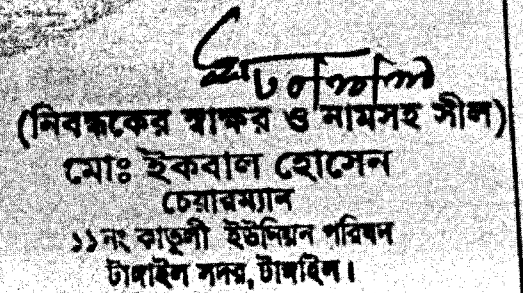 (নিবন্ধকের স্বাক্ষর ও নামসহ সীল)
মোঃ ইকবাল হোসেন
চেয়ারম্যান
১১নং কাতুলী ইউনিয়ন পরিষদ
টাঙ্গাইল সদর, টাঙ্গাইল।